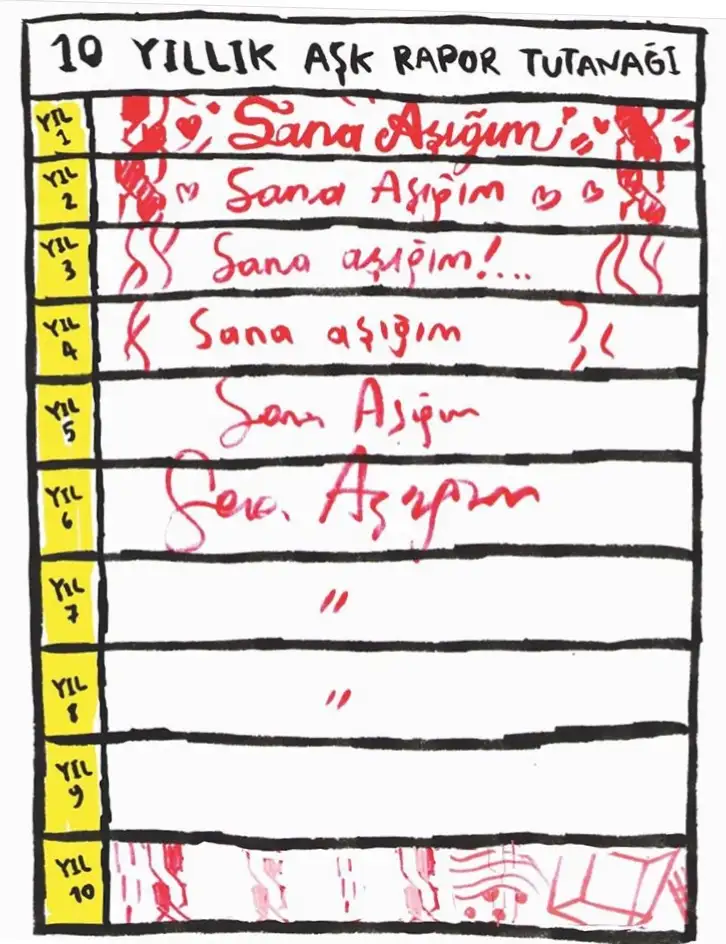 10 YILLIK AŞK RAPOR TUTANAĞI
YIL 1 Sana Aşığım
YIL 2 Sana Aşığım
YIL 3 Sana aşığım!...
YIL 4 Sana aşığım
YIL 5 Sana Aşığım
YIL 6 Sana Aşığım
YIL 7 "
YIL 8 "
YIL 9
YIL 10